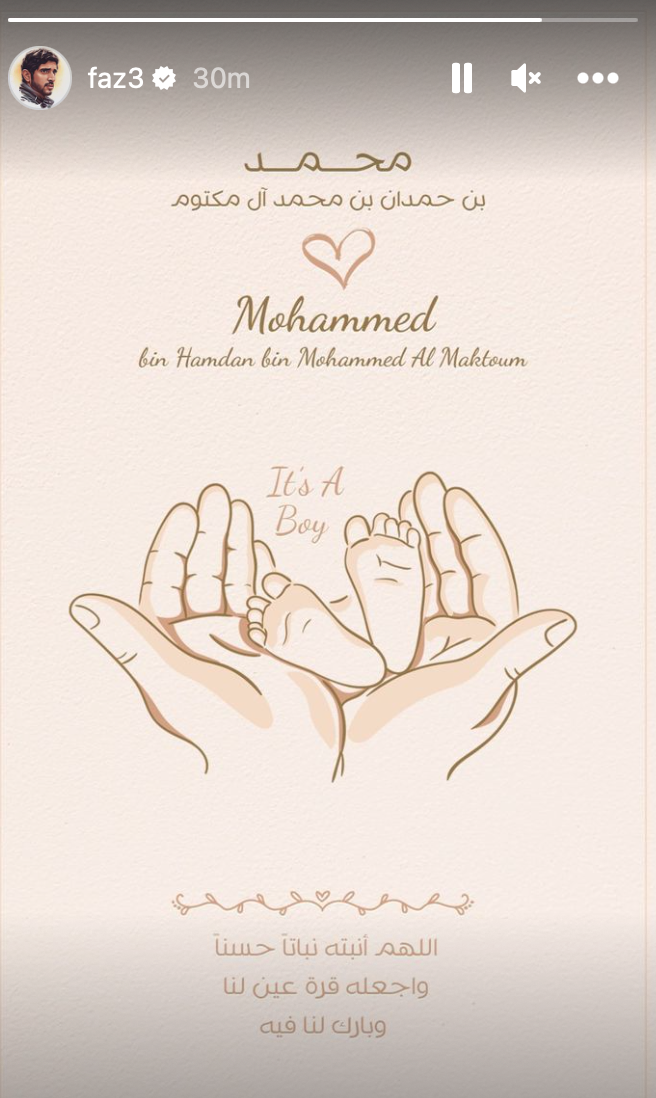 faz3 30m
محمد
بن حمدان بن محمد آل مكتوم
Mohammed
bin Hamdan bin Mohammed Al Maktoum
It's A
Boy
اللهم أنبته نباتاً حسناً
واجعله قرة عين لنا
وبارك لنا فيه